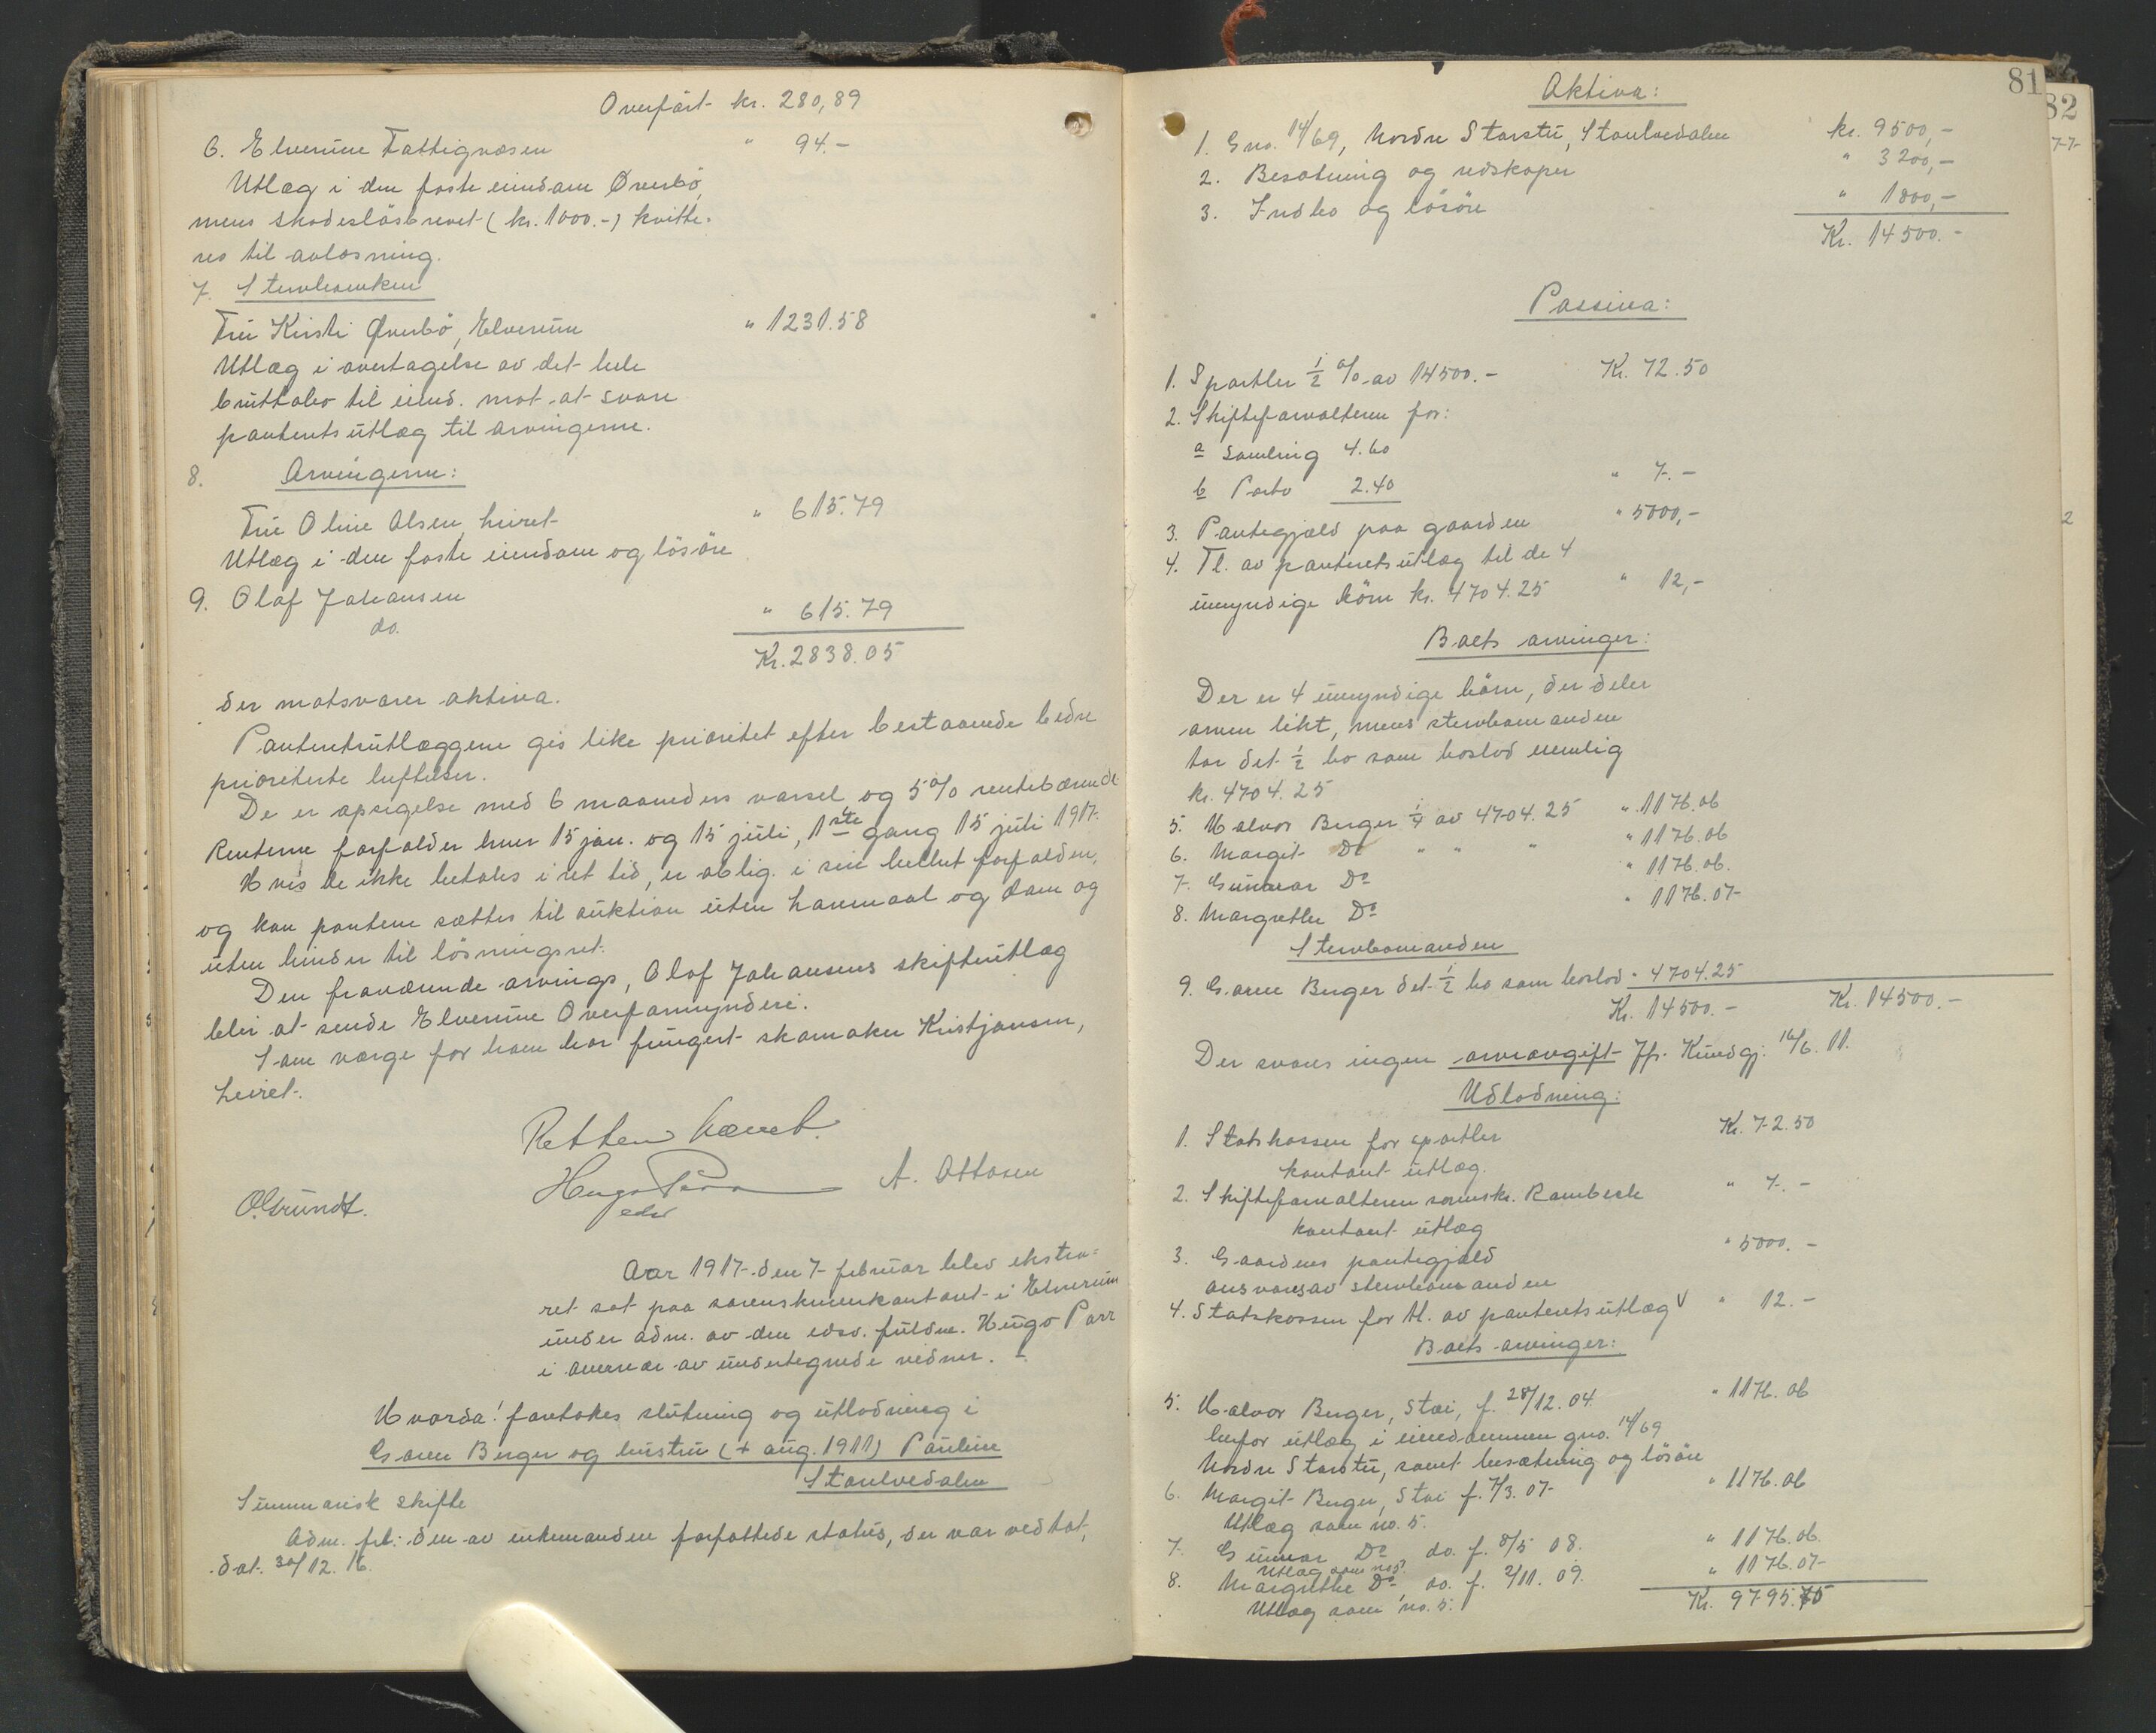 Overført kr. 280,89
6. Elverum Fattigvæsen " 94.-
Utlæg i den faste eiendom Øverbö,
mens skadeslösbrevet (kr. 1000.-) kvitte-
res til avlösning.
7. Stervboenken
Fru Kirsti Øverbö, Elverum " 1231.58
Utlæg i overtagelse av det hele
bruttobo til eiend. mot at svare
panteretsutlæg til arvingerne.
8. Arvingerne:
Fru Oline Olsen, heiret " 615.79
Utlæg i den faste eiendom og lösöre
9. Olaf Johansen
do. " 615.79
Kr. 2838.05
der motsvarer aktiva.
Panteretsutlæggene gis like prioritet efter bestaaende bedre
prioriterte heftelser.
De er opsigelse med 6 maaneders varsel og 5% rentebærende
Renterne forfalder hver 15 jan. og 15 juli, 1ste gang 15 juli 1917.
Hvis de ikke betales i ret tid, er oblig. i sin helhet forfalden,
og kan pantene sættes til auktion uten lovmaal og dom og
uten hinder til lösningsret.
Den fraværende arvings, Olaf Johansens skifteutlæg
blir at sende Elverum Overformynderi.
Som værge for ham har fungert skomaker Kristjansen,
heiret.
Retten hævet.
Hugo Parr A. Ottosen
edsv
O. Grundt.
Aar 1917 den 7 februar blev ekstra-
ret sat paa sorenskriverkontoret i Elverum
under adm. av den edsv. fuldm. Hugo Parr
i nærvær av undertegnede vidner. -
Hvorda! foretokes slutning og utlodning i
Garen Berger og hustru (+ aug. 1911) Pauline
Staulvedalen
Summarisk skifte
Adm. frl. den av enkemanden forfattede status, der var vedtat,
dat. 30/12. 16.
81
82
Aktiva:
1. Gno. 14/69, Nordre Starstu, Staulvedalen kr. 9500,-
2. Besætning og redskaper " 3200,-
3. Indbo og lösöre " 1800,-
Kr. 14500.-
Passiva:
1. Sportler 1/2 % av 14500.- Kr. 72.50
2. Skifteforvalteren for:
a samling 4.60
b Porto 2.40 " 7.-
3. Pantegjæld paa gaarden " 5000,-
4. Tl. av panteretsutlæg til de 4
umyndige börn kr. 4704.25 " 12,-
Boets arvinger:
Der er 4 umyndige börn, der deler
arven likt, mens stervbomanden
tar det 1/2 bo som boslod nemlig
kr. 4704.25
5. Halvor Berger 1/4 av 4704.25 " 1176.06
6. Margit Do " " " " 1176.06
7. Gunnar Do " 1176.06.
8. Margrethe Do " 1176.07
Stervbomanden
9. Garen Berger det 1/2 bo som boslod " 4704.25
Kr. 14500.- Kr. 14500.-
Der svares ingen arveavgift Jfr. Kundgj. 16/6. 11.
Udlodning:
1. Statskassen for sportler Kr. 72.50
kontant utlæg.
2. Skifteforvalteren sorenskr. Rambech " 7.-
kontant utlæg
3. Gaardens pantegjæld " 5000.-
ansvares av stervbomanden
4. Statskassen for tl. av panteretsutlæg " 12.-
Boets arvinger:
5. Halvor Berger, Stai, f. 28/12. 04. " 1176.06
herfor utlæg i eiendommen gno. 14/69
Nordre Starstu, samt besætning og lösöre
6. Margit Berger, Stai f. 7/3. 07 " 1176.06
Utlæg som no. 5.
7. Gunnar Do do. f. 8/5 08. " 1176.06.
Utlæg som no 5.
8. Margrethe Do do. f. 2/11. 09. " 1176.07
Utlæg som no. 5.
Kr. 9795.75